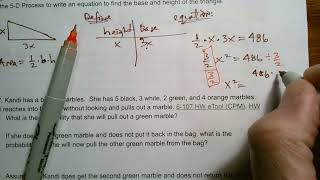 the 5-D Process to write an equation to find the base and height of the triangle.
Define equation:
height base 1/2 x · 3x = 486
x 3x
3x
Area = 1/2 · b · h
3/2 x² = 486 ÷ 3/2
3/2
x² = 486 ·
Kandi has a b marbles. She has 5 black, 3 white, 2 green, and 4 orange marbles.
without looking reaches into the and pulls out a marble. 5-107 HW eTool (CPM). HW
What is the ability that she will pull out a green marble?
If she d een marble and does not put it back in the bag, what is the
probability e will now pull the other green marble from the bag?
Assu di does get the second green marble and does not return